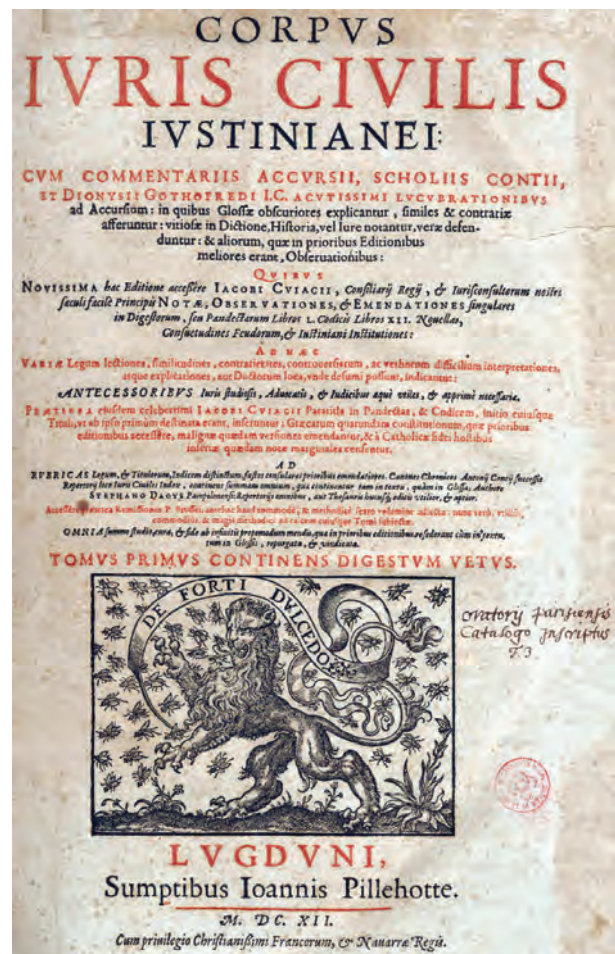 CORPVS
IVRIS CIVILIS
IVSTINIANEI:
CVM COMMENTARIIS ACCVRSII, SCHOLIIS CONTII,
ET DIONYSII GOTHOFREDI I.C. ACVTISSIMI LVCVBRATIONIBVS
ad Accursium: in quibus Glossæ obscuriores explicantur, similes & contrariæ
afferuntur: vitiosæ in Dictione, Historia, vel Iure notantur, veræ defen-
duntur: & aliorum, quæ in prioribus Editionibus
meliores erant, Observationibus:
QVIBVS
NOVISSIMA hac Editione accessere IACOBI CVIACII, Consiliarij Regij, & Iurisconsultorum nostri
sæculi facile Principis NOTÆ, OBSERVATIONES, & EMENDATIONES singulares
in Digestorum, seu Pandectarum Libros L. Codicis Libros XII. Nouellas,
Consuetudines Feudorum, & Iustiniani Institutiones:
AD HÆC
VARIÆ Legum lectiones, similitudines, contrarietates, controuersiarum, ac verborum difficilium interpretationes,
atque explicationes, aut Doctorum loca, vnde desumi possunt, indicantur:
ANTECESSORIBVS Iuris studiosis, Aduocatis, & Iudicibus æquè vtiles, & apprimè necessariæ.
PRÆTEREA eiusdem celeberrimi IACOBI CVIACII Paratitla in Pandectas, & Codicem, initio cuiusque
Tituli, vt ab ipso primùm destinata erant, inseruntur: Græcarum quarundam constitutionum, quæ prioribus
editionibus accessere, malignæ quædam versiones emendantur, & à Catholicæ fidei hostibus
insertæ quædam notæ marginales censentur.
AD
RVBRICAS Legum, & Titulorum, Indicem distinctum, fastos consulares prioribus emendatiores. Canones Chronicos Antonij Contij successit
Repertorij loco Iuris Ciuilis Index, continens summam omnium, quæ continentur tum in textu, quàm in Glossa, Authore
STEPHANO DAOYS Pampilonensi: Repertorijs omnibus, aut Thesauris hucusque editis vtilior, & aptior.
OMNIA summo studio, cura, & fide ab infinitis propemodum mendis, quæ in prioribus editionibus resederant cùm in textu,
tum in Glossis, repurgata, & vindicata.
TOMVS PRIMVS CONTINENS DIGESTVM VETVS.
DE FORTI DVLCEDO
oratorij parisiensis
Catalogo inscriptus
LVGDVNI,
Sumptibus Ioannis Pillehotte.
M. DC. XII.
Cum priuilegio Christianissimi Francorum, & Nauarræ Regis.